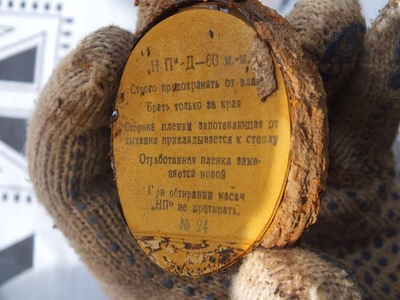 „НП“-Д—60 м.м.
Строго предохранять от вла
Брать только за края
Сторона пленки запотевающая от
дыхания прикладывается к стеклу
Отработанная пленка заме-
няется новой
При обтирании маски
„НП“ не протирать.
№ 24